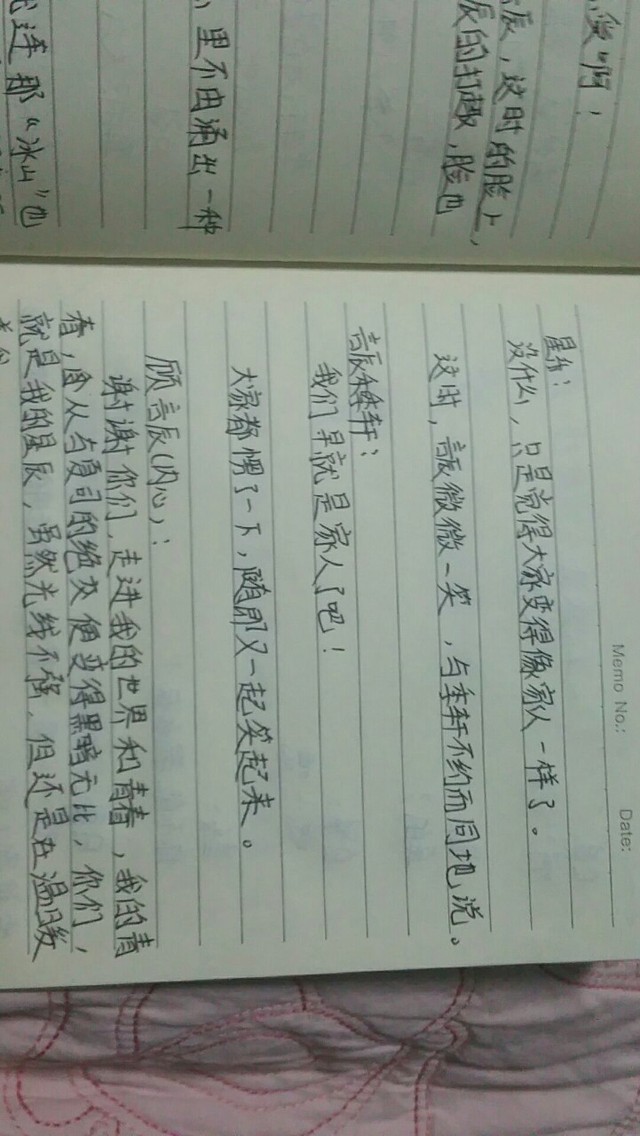 爱啊！
辰，这时的脸上，
辰的打趣，脸也
里不由涌出一种
连那“冰山”也
Memo No.: Date:
没什么，只是觉得大家变得像家人一样了。
这时，言辰微微一笑，与季轩不约而同地说。
言辰和季轩：
我们早就是家人了吧！
大家都愣了一下，随即又一起笑起来。
顾言辰(内心)：
谢谢你们，走进我的世界和青春，我的青
春，自从与夏司的绝交便变得黑暗无比，你们，
就是我的星辰，虽然光线不强，但还是在温暖